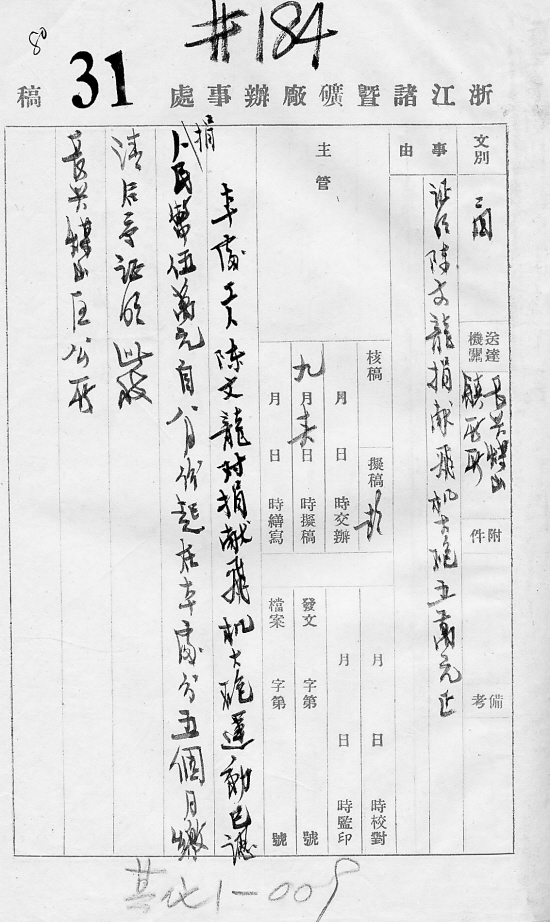 #184
80
31
浙江諸暨礦廠辦事處 稿
文別
送達機關 長兴煤山鎮公所
附件
備考
事由
証明陳文龍捐献飛机大砲五萬元正
主管
核稿
擬稿 彭
月 日 時交辦
九月 日 時擬稿
月 日 時繕寫
月 日 時校對
月 日 時監印
發文 字第 號
檔案 字第 號
本處工人陳文龍对捐献飛机大砲運動已認
捐人民幣伍萬元自八月份起在本處分五個月繳
清后予証明此致
長兴煤山 公所
其化1-009